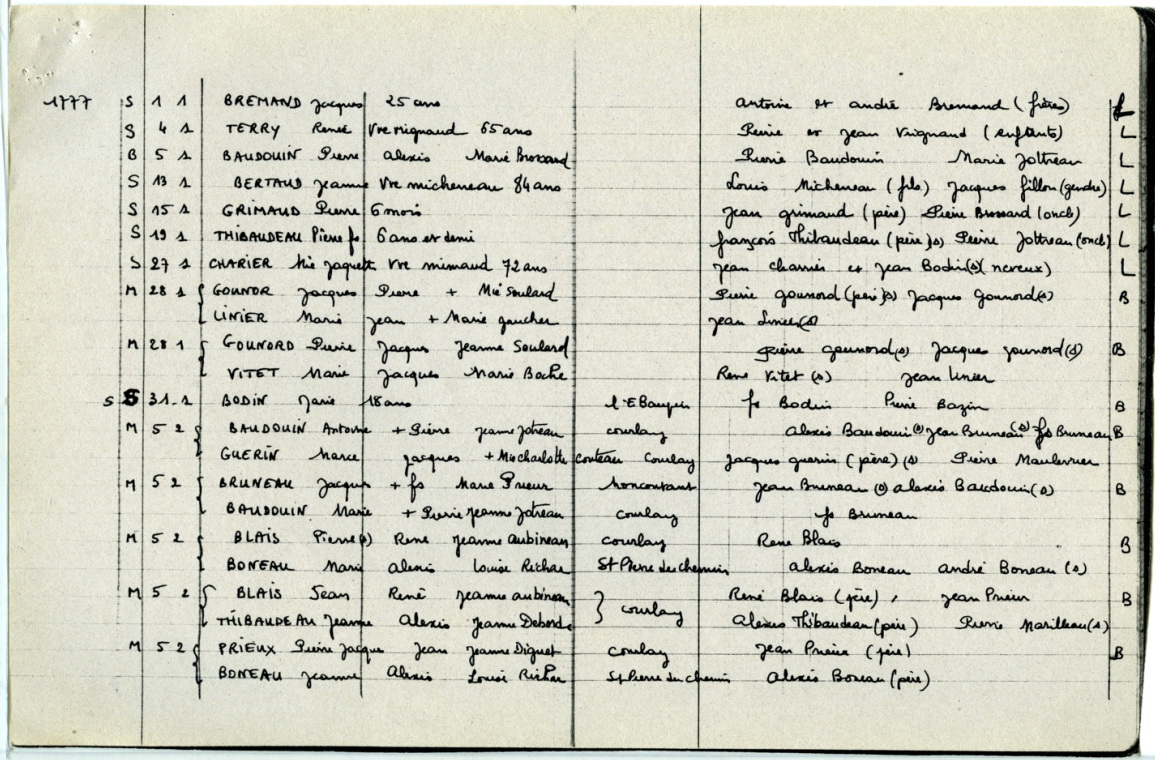 1777 S 1 1 BREMAND Jacques 25 ans Antoine et andré Bremand (frères) L
S 4 1 TERRY Renée Vve vrignaud 65 ans Pierre et Jean Vrignaud (enfants) L
B 5 1 BAUDOUIN Pierre alexis Marie Brossard Pierre Baudouin Marie Jottreau L
S 13 1 BERTAUD Jeanne Vve micheneau 84 ans Louis Micheneau (fils) Jacques fillon (gendre) L
S 15 1 GRIMAUD Pierre 6 mois Jean grimaud (père) Pierre Brossard (oncle) L
S 19 1 THIBAUDEAU Pierre fs 6 ans et demi françois Thibaudeau (père fs) Pierre Jottreau (oncle) L
S 27 1 CHARIER Mie Jaquette Vve mimaud 72 ans Jean charrié et Jean Bodin (s) (neveux) L
M 28 1 { GOUNOR Jacques Pierre + Mie Soulard Pierre gounord (père) (s) Jacques Gounord (s) B
LINIER Marie Jean + Marie gaucher Jean Linier (s)
M 28 1 { GOUNORD Pierre Jacques Jeanne Soulard Pierre gounord (s) Jacques gounord (s) B
VITET Marie Jacques Marie Boche René Vitet (s) Jean Linier
S S 31 1 BODIN Marie 18 ans l'Ebaupin fs Bodin Pierre Bazin B
M 5 2 { BAUDOUIN Antoine + Pierre Jeanne Jotreau courlay Alexis Baudouin (s) Jean Bruneau (s) fs Bruneau B
GUERIN Marie Jacques + Mie charlotte conteau Courlay Jacques guerin (père) (s) Pierre Maulevrier
M 5 2 { BRUNEAU Jacques + fs Marie Prieur Moncoutant Jean Bruneau (s) alexis Baudouin (s) B
BAUDOUIN Marie + Pierre Jeanne Jotreau courlay fs Bruneau
M 5 2 { BLAIS Pierre (s) René Jeanne aubineau courlay René Blais B
BONEAU Marie alexis Louise Richer St Pierre du chemin alexis Boneau andré Boneau (s)
M 5 2 { BLAIS Jean René Jeanne aubineau } courlay René Blais (père) , Jean Prieur B
THIBAUDEAU Jeanne Alexis Jeanne Deborde Alexis Thibaudeau (père) Pierre Marilleau (s)
M 5 2 { PRIEUX Pierre Jacque Jean Jeanne Diguet courlay Jean Prieur (père) B
BONEAU Jeanne Alexis Louise Richer St Pierre du chemin Alexis Boneau (père)